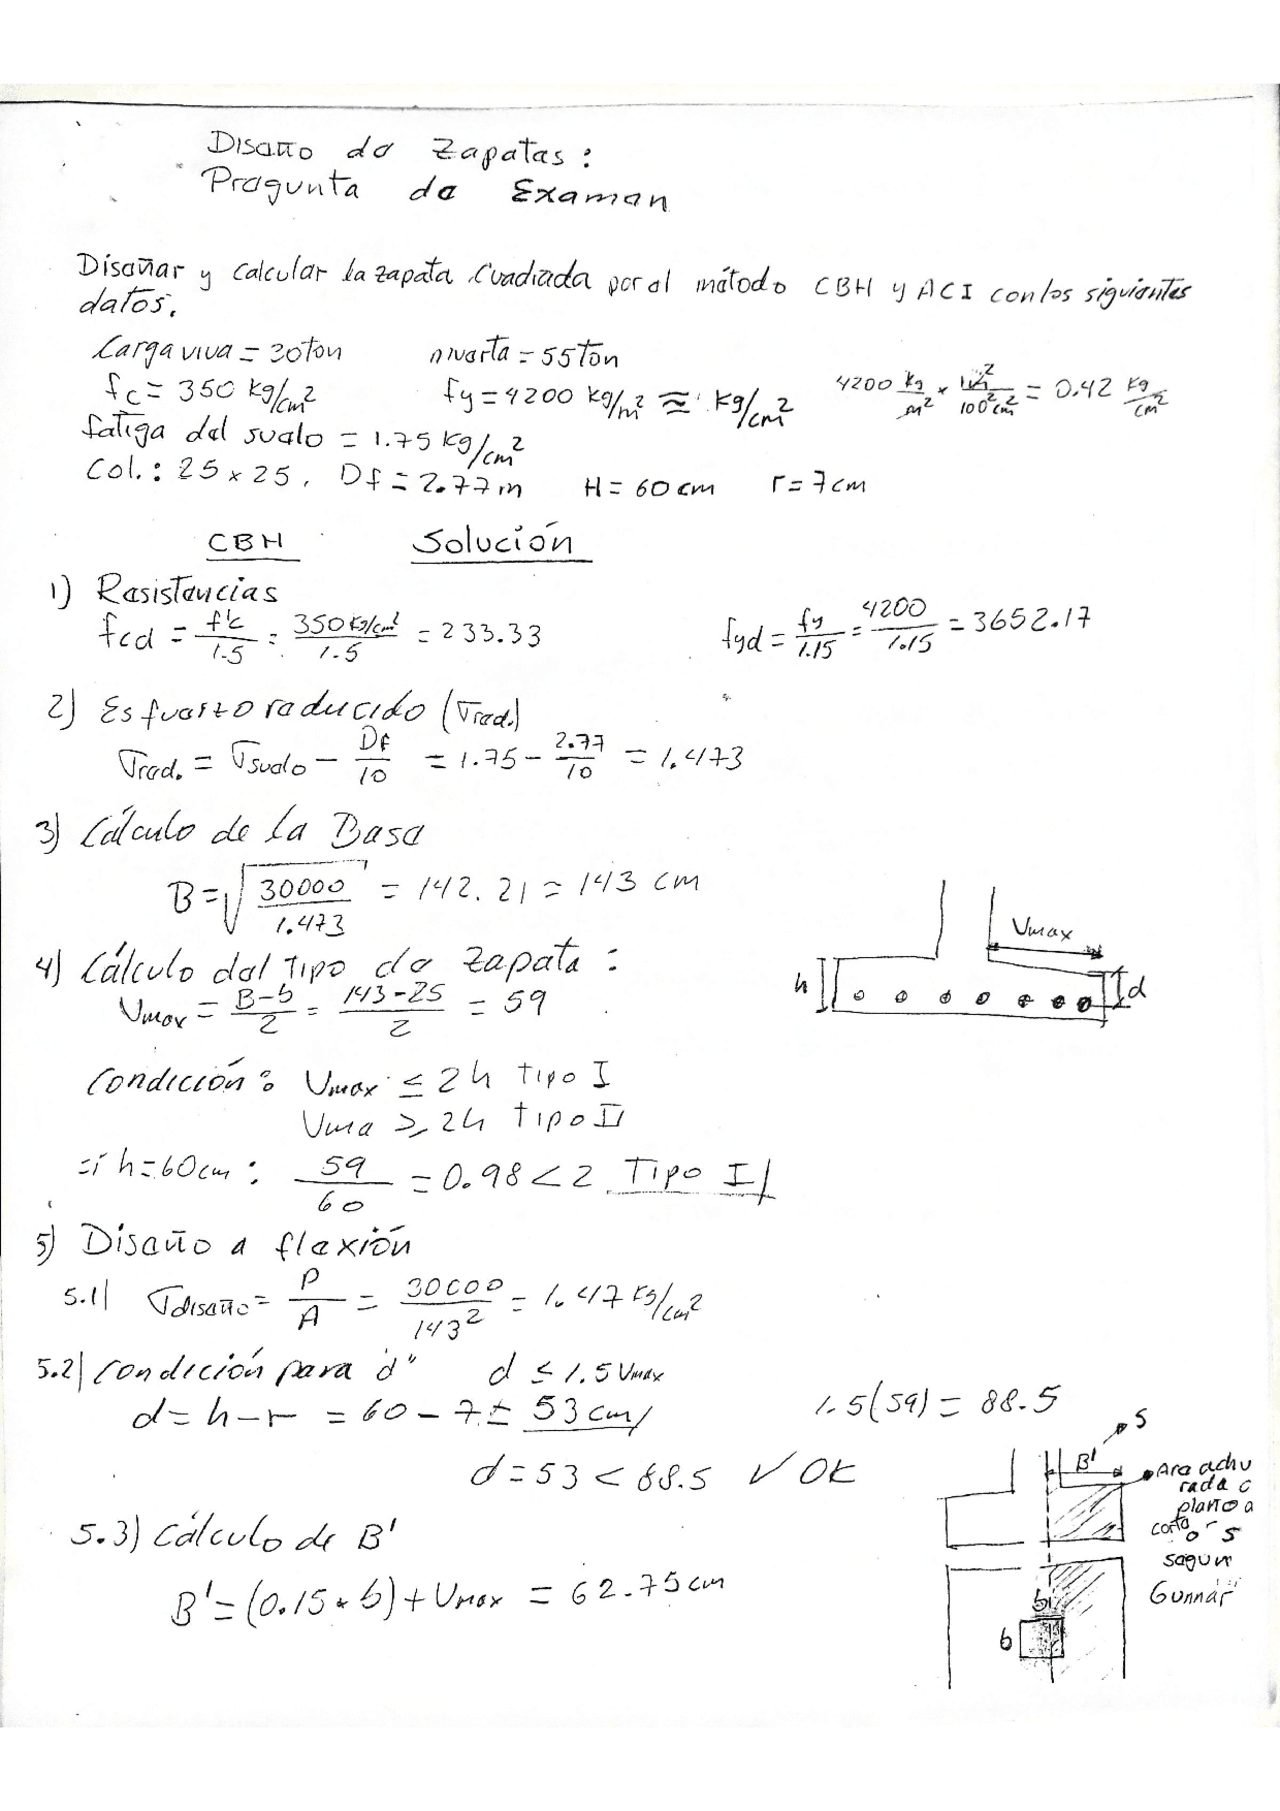 Diseño de Zapatas:
Pregunta de Examen
Diseñar y calcular la zapata Cuadrada por el método CBH y ACI con los siguientes
datos.
Carga viva = 30 ton muerta = 55 Ton
fc = 350 kg/cm² fy = 4200 kg/m² ≈ kg/cm² 4200 kg/m² * 1m²/100²cm² = 0.42 kg/cm²
fatiga del suelo = 1.75 kg/cm²
Col.: 25 x 25, Df = 2.77 m H = 60 cm r = 7 cm
CBH Solución
1) Resistencias
fcd = f'c/1.5 = 350 kg/cm²/1.5 = 233.33 fyd = fy/1.15 = 4200/1.15 = 3652.17
2) Esfuerzo reducido (σred.)
σred. = σsuelo - Df/10 = 1.75 - 2.77/10 = 1.473
3) Cálculo de la Base
B = √30000/1.473 = 142.21 = 143 cm
4) Cálculo del tipo de zapata:
Vmax = B-b/2 = 143-25/2 = 59
Vmax
h
d
Condición: Vmax ≤ 2h tipo I
Vma ≥ 2h tipo II
h = 60 cm: 59/60 = 0.98 < 2 Tipo I
5) Diseño a flexión
5.1| σdiseño = P/A = 30000/143² = 1.47 kg/cm²
5.2| Condición para "d" d ≤ 1.5 Vmax
d = h - r = 60 - 7 = 53 cm 1.5(59) = 88.5
d = 53 < 88.5 ✓ OK
5.3) Cálculo de B'
B' = (0.15 * b) + Vmax = 62.75 cm
S
B'
Are achu
rada o
plano a
corte
o - S
segun
Gunnar
b
b